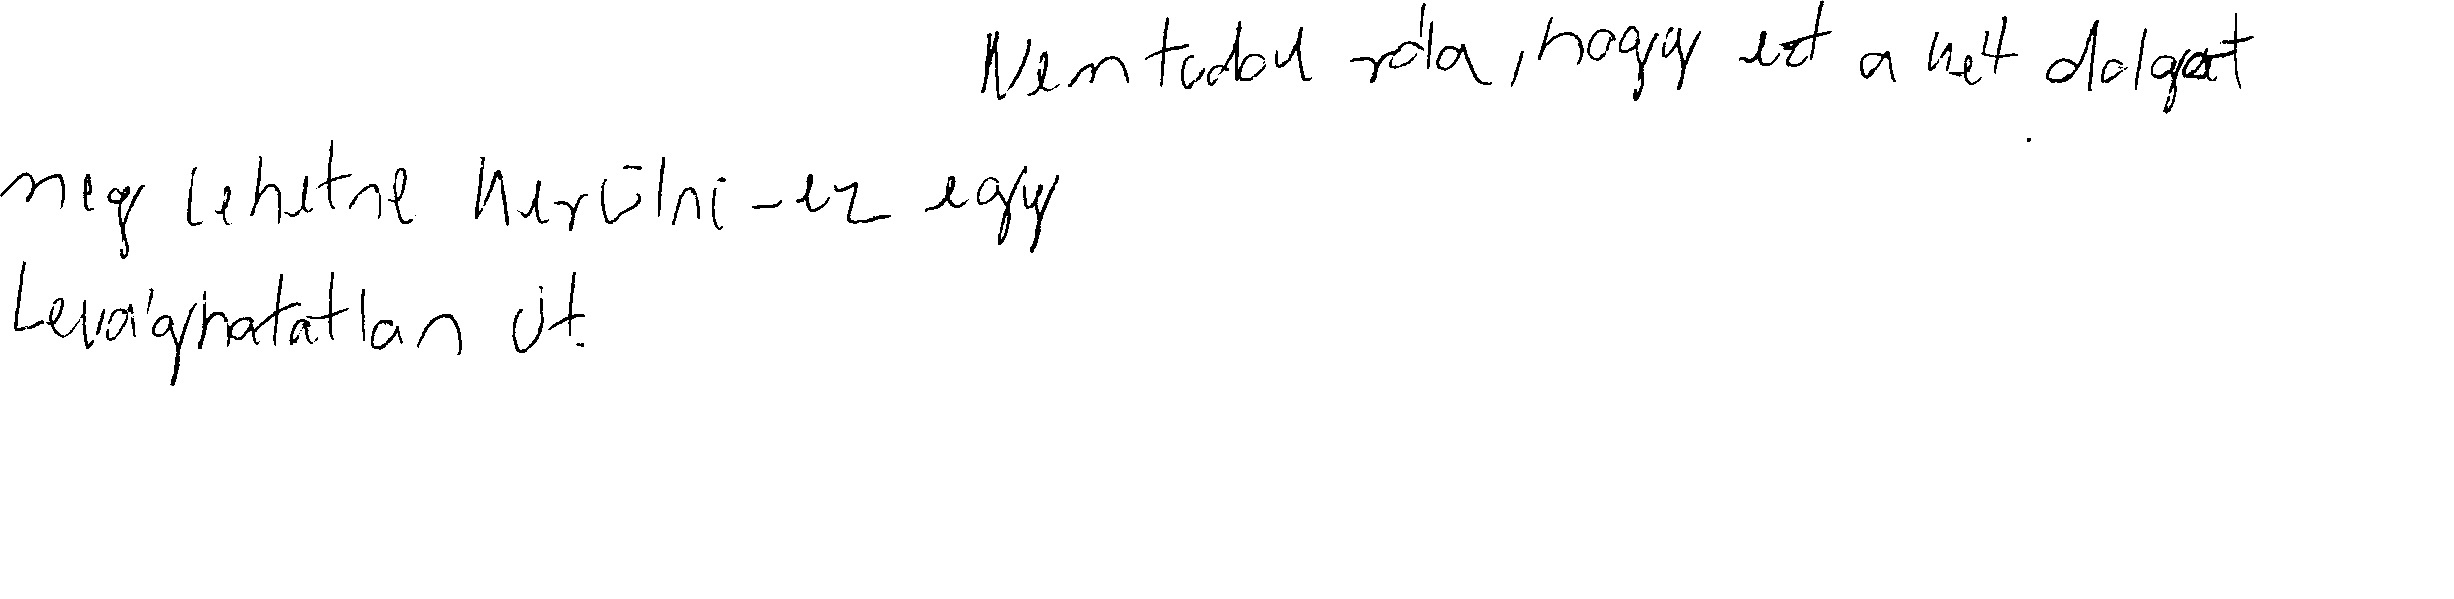 Nem tudok róla, hogy ezt a két dolgot
meg lehetne kerülni - ez egy
Levághatatlan út.